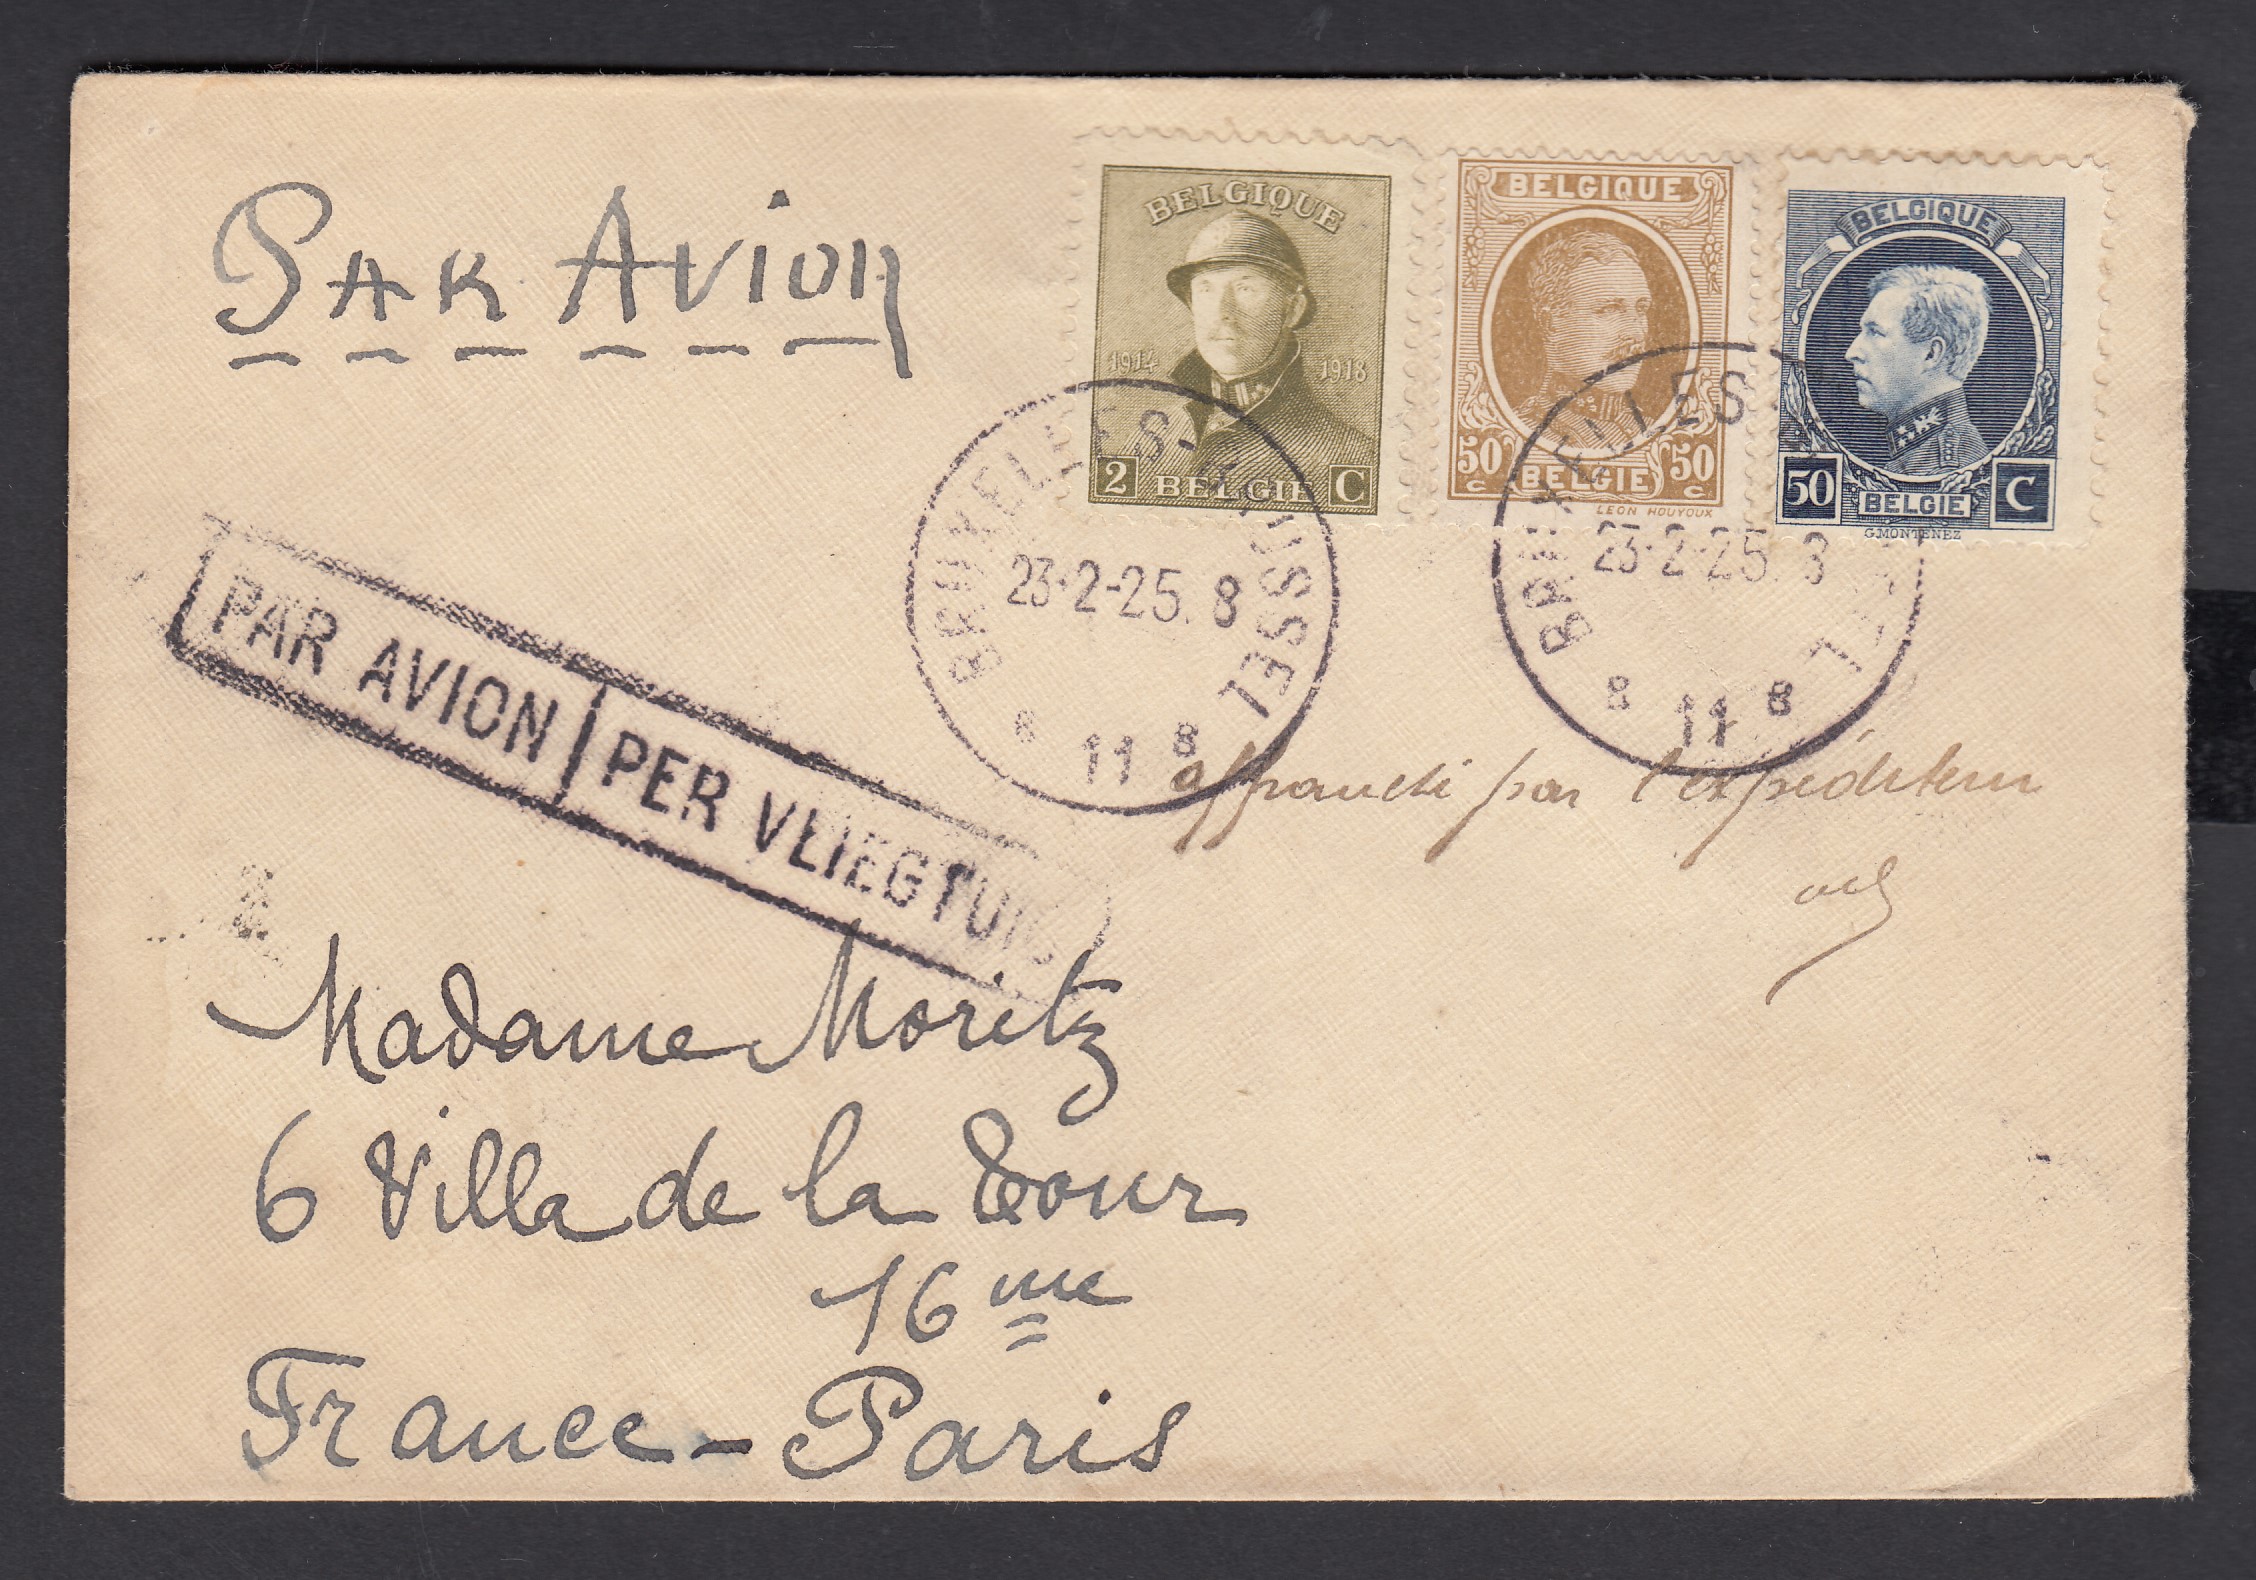 PAR AVION
BELGIQUE
1914 1918
2 BELGIE C
BELGIQUE
50 c BELGIE 50 c
LEON HOUYOUX
BELGIQUE
50 BELGIE C
G.MONTENEZ
BRUXELLES-BRUSSEL
23-2-25. 8
8 11 8
BRUXELLES
23-2-25. 8
8 11 8
PAR AVION PER VLIEGTUIG
affranchi par l'expéditeur
Madame Moritz
6 Villa de la Tour
16 me
France-Paris